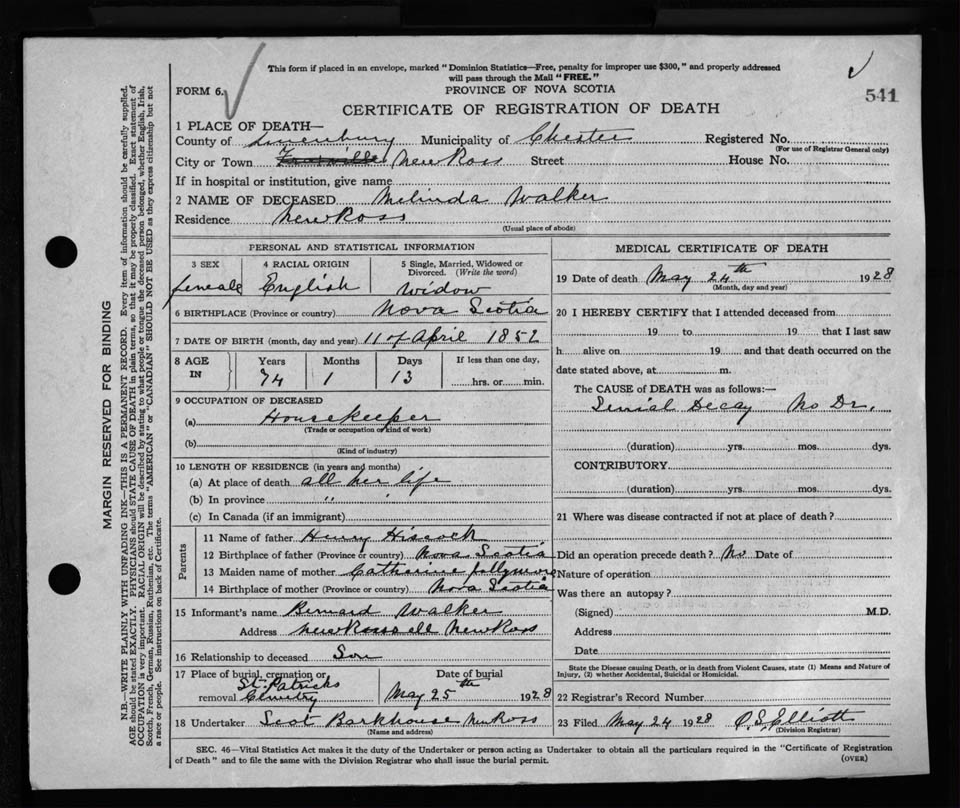 This form if placed in an envelope, marked "Dominion Statistics—Free, penalty for improper use $300," and properly addressed
will pass through the Mail "FREE."
FORM 6.
PROVINCE OF NOVA SCOTIA
541
CERTIFICATE OF REGISTRATION OF DEATH
1 PLACE OF DEATH—
County of Lunenburg Municipality of Chester Registered No.
(For use of Registrar General only)
City or Town New Ross Street House No.
If in hospital or institution, give name
2 NAME OF DECEASED Melinda Walker
Residence New Ross
(Usual place of abode)
PERSONAL AND STATISTICAL INFORMATION
3 SEX 4 RACIAL ORIGIN 5 Single, Married, Widowed or
Divorced. (Write the word)
female English Widow
6 BIRTHPLACE (Province or country) Nova Scotia
7 DATE OF BIRTH (month, day and year) 11 of April 1852
8 AGE IN Years Months Days If less than one day,
74 1 13 hrs. or min.
9 OCCUPATION OF DECEASED
(a) Housekeeper
(Trade or occupation or kind of work)
(b)
(Kind of industry)
10 LENGTH OF RESIDENCE (in years and months)
(a) At place of death all her life
(b) In province " "
(c) In Canada (if an immigrant)
Parents
11 Name of father Henry Hiscock
12 Birthplace of father (Province or country) Nova Scotia
13 Maiden name of mother Catherine Jollymore
14 Birthplace of mother (Province or country) Nova Scotia
15 Informant's name Bernard Walker
Address New Ross
16 Relationship to deceased Son
17 Place of burial, cremation or Date of burial
St Patricks
removal Cemetry May 25th 1928
18 Undertaker Scot Barkhouse New Ross
(Name and address)
MEDICAL CERTIFICATE OF DEATH
19 Date of death May 24th 1928
(Month, day and year)
20 I HEREBY CERTIFY that I attended deceased from
19 to 19 that I last saw
h alive on 19 and that death occurred on the
date stated above, at m.
The CAUSE of DEATH was as follows:—
Senial Decay No Dr.
(duration) yrs. mos. dys.
CONTRIBUTORY
(duration) yrs. mos. dys.
21 Where was disease contracted if not at place of death?
Did an operation precede death? No Date of
Nature of operation
Was there an autopsy?
(Signed) M.D.
Address
Date
State the Disease causing Death, or in death from Violent Causes, state (1) Means and Nature of
Injury, (2) whether Accidental, Suicidal or Homicidal.
22 Registrar's Record Number
23 Filed May 24 1928 C. S. Elliott
(Division Registrar)
SEC. 46—Vital Statistics Act makes it the duty of the Undertaker or person acting as Undertaker to obtain all the particulars required in the "Certificate of Registration
of Death" and to file the same with the Division Registrar who shall issue the burial permit.
(OVER)
MARGIN RESERVED FOR BINDING
N.B.—WRITE PLAINLY WITH UNFADING INK—THIS IS A PERMANENT RECORD. Every item of information should be carefully supplied.
AGE should be stated EXACTLY. PHYSICIANS should STATE CAUSE OF DEATH in plain terms, so that it may be properly classified. Exact statement of
OCCUPATION is very important. RACIAL ORIGIN will be described by stating to what people or tongue the deceased person belonged, whether English, Irish,
Scotch, French, German, Russian, Ruthenian, etc. The terms "AMERICAN" or "CANADIAN" SHOULD NOT BE USED as they express citizenship but not
a race or people. See instructions on back of Certificate.